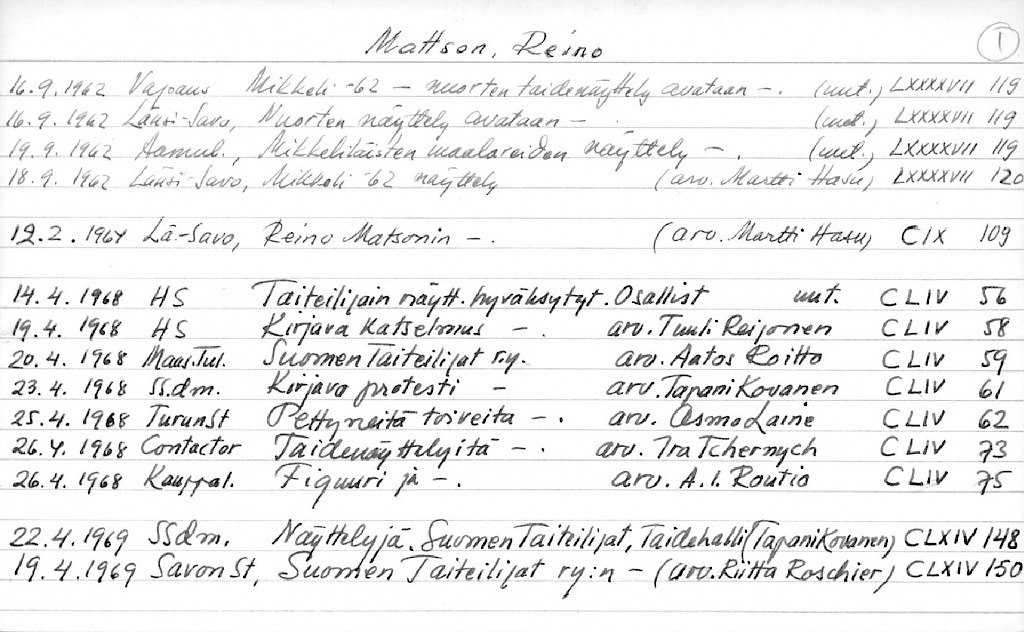 Mattson, Reino 1
16.9.1962 Vapaus Mikkeli -62 – nuorten taidenäyttely avataan –. (uut.) LXXXXVII 119
16.9.1962 Länsi-Savo, Nuorten näyttely avataan –. (uut.) LXXXXVII 119
19.9.1962 Aamul., Mikkeliläisten maalareiden näyttely –. (uut.) LXXXXVII 119
18.9.1962 Länsi-Savo, Mikkeli -62 näyttely (arv. Martti Hasu) LXXXXVII 120
12.2.1964 Lä.-Savo, Reino Matsonin –. (arv. Martti Hasu) CIX 109
14.4.1968 HS Taiteilijain näytt. hyväksytyt. Osallist uut. CLIV 56
19.4.1968 HS Kirjava Katselmus –. arv. Tuuli Reijonen CLIV 58
20.4.1968 Maas.Tul. Suomen Taiteilijat r.y. arv. Aatos Roitto CLIV 59
23.4.1968 SS.dm. Kirjava protesti – arv. Tapani Kovanen CLIV 61
25.4.1968 TurunSt Pettyneitä toiveita –. arv. Osmo Laine CLIV 62
26.4.1968 Contactor Taidenäyttelyitä –. arv. Ira Tchernych CLIV 73
26.4.1968 Kauppal. Figuuri ja –. arv. A.I. Routio CLIV 75
22.4.1969 SSdm. Näyttelyjä. Suomen Taiteilijat, Taidehalli (Tapani Kovanen) CLXIV 148
19.4.1969 SavonSt, Suomen Taiteilijat ry:n – (arv. Riitta Roschier) CLXIV 150